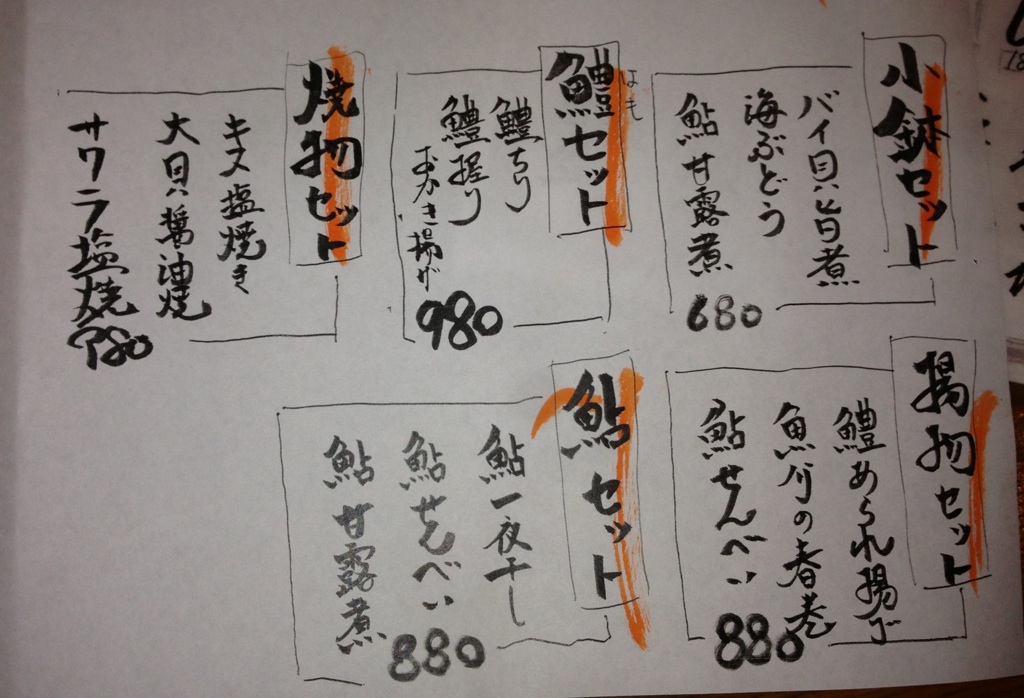 小鉢セット
バイ貝旨煮
海ぶどう
鮎甘露煮
680
鱧セット
はも
鱧ちり
鱧握り
おかき揚げ
980
焼物セット
キス塩焼き
大貝醤油焼
サワラ塩焼
980
揚物セット
鱧あられ揚げ
魚河の春巻
鮎せんべい
880
鮎セット
鮎一夜干し
鮎せんべい
鮎甘露煮
880